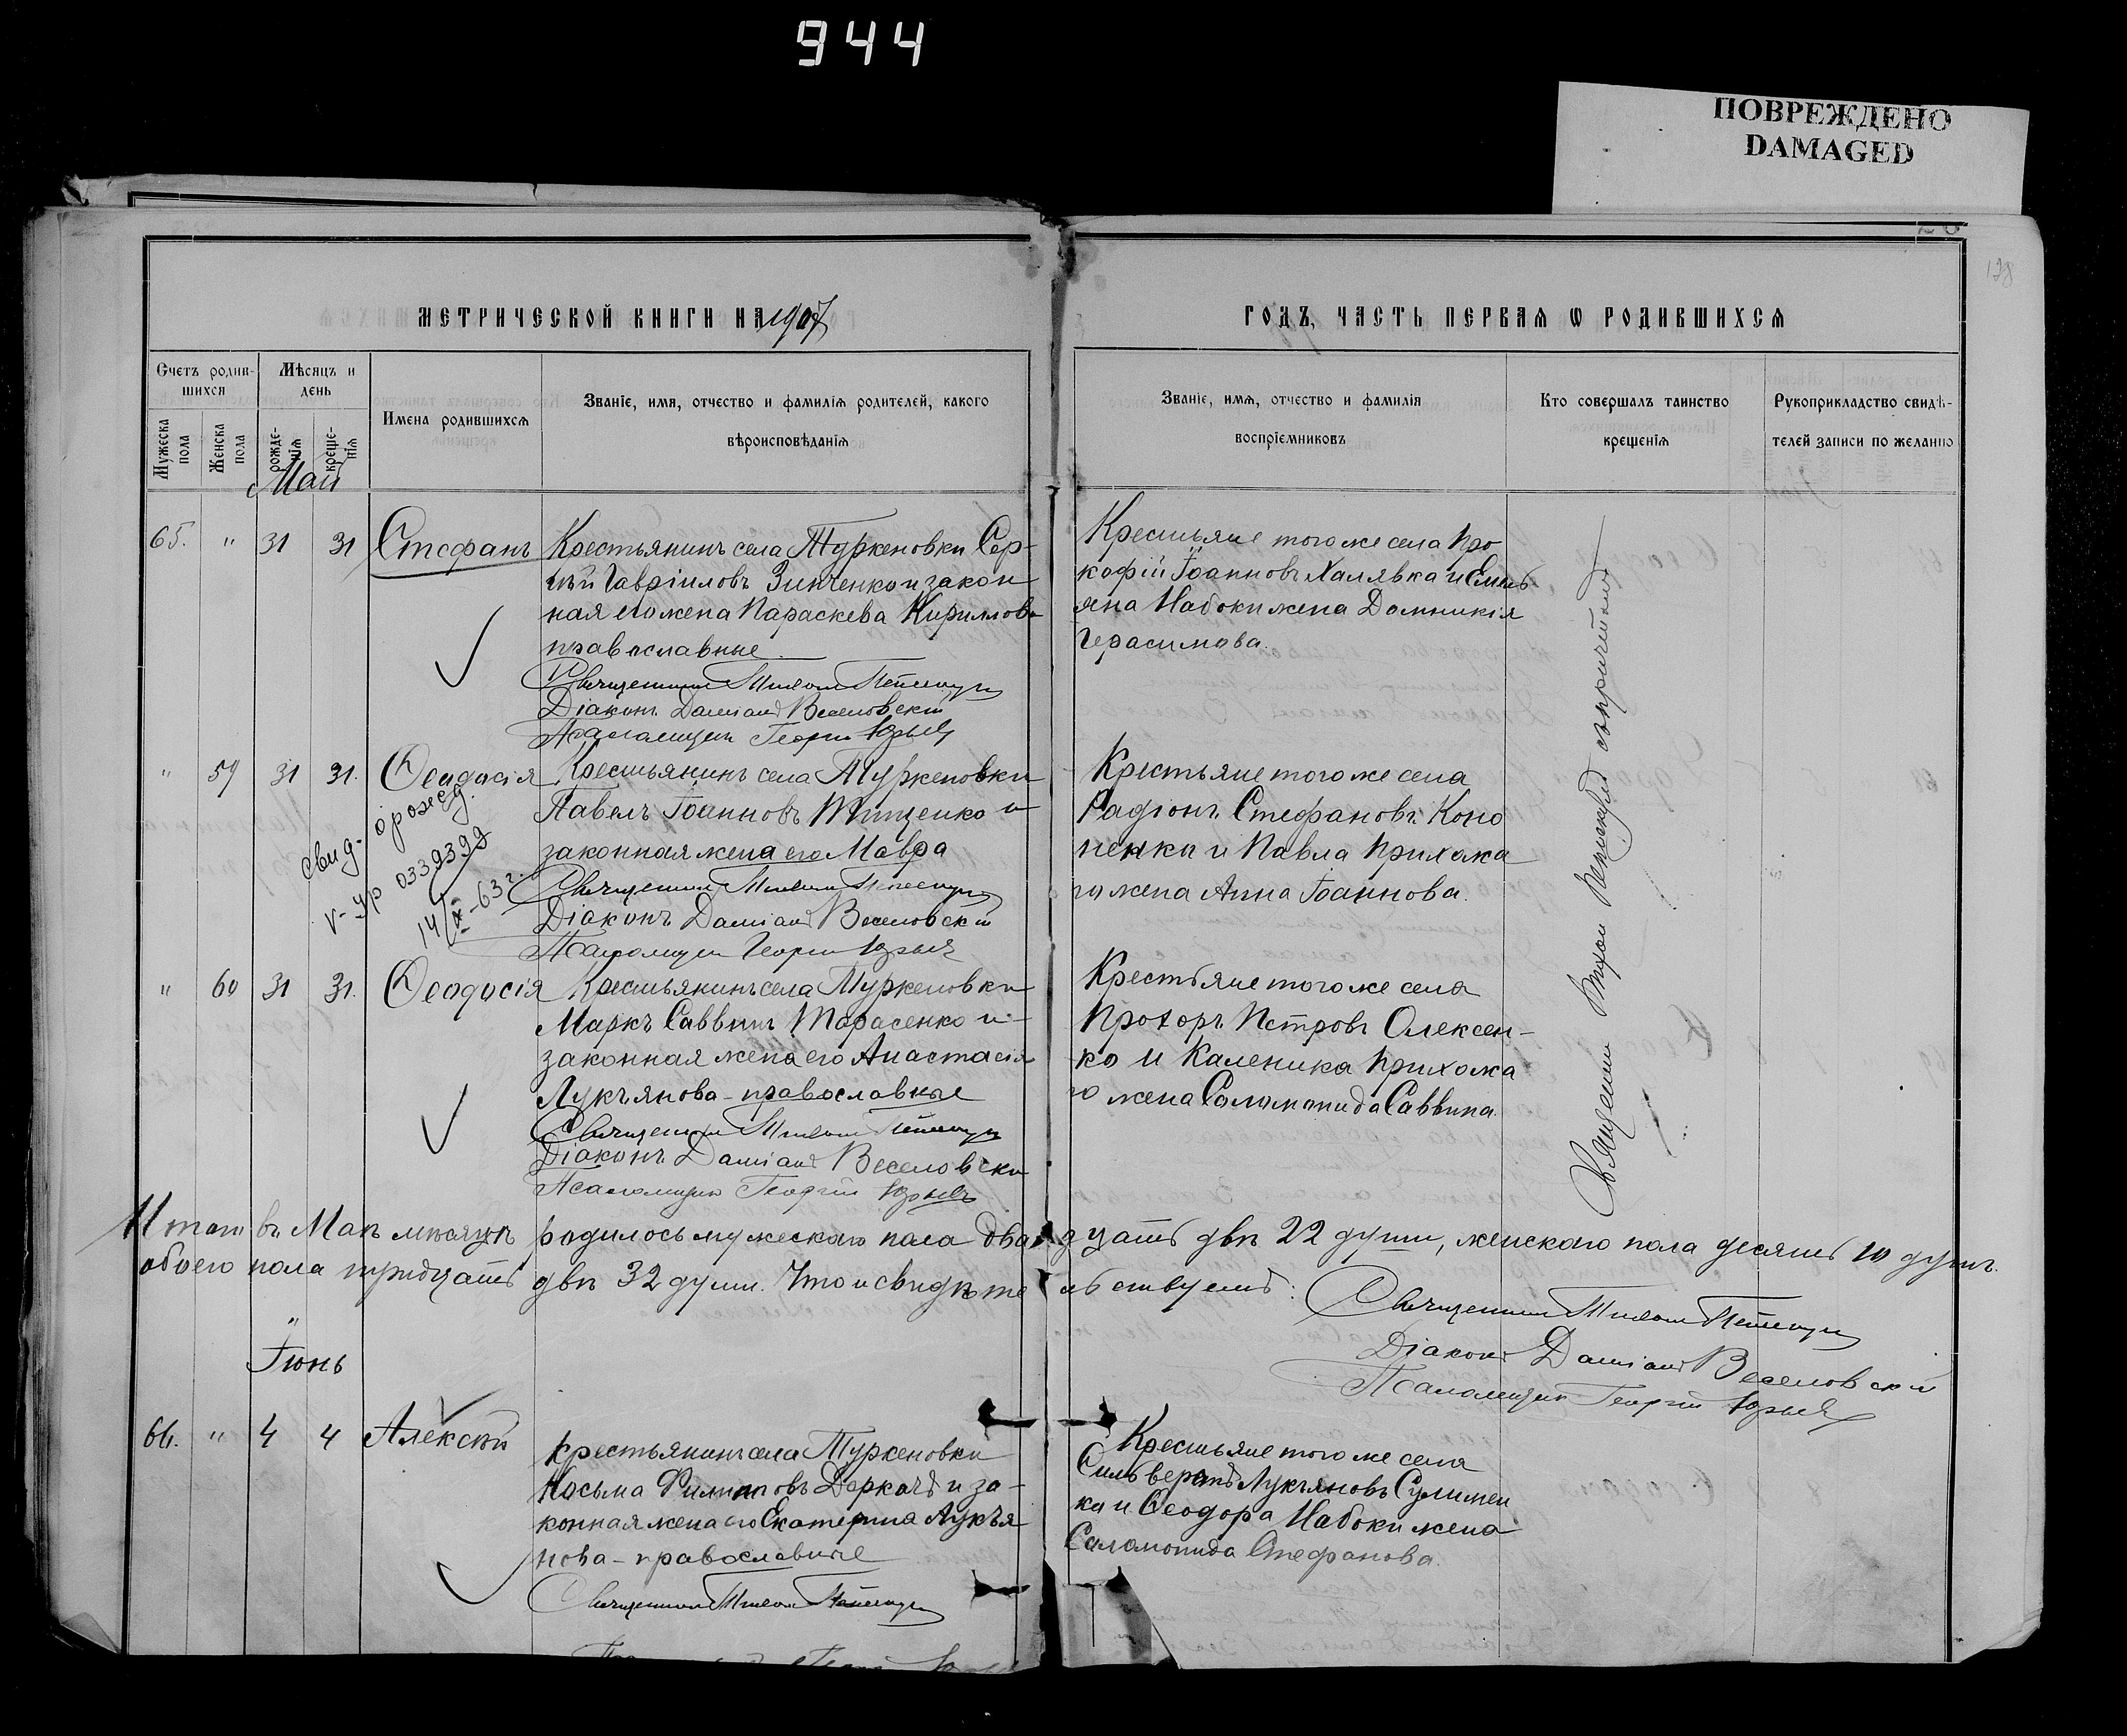 944
ПОВРЕЖДЕНО
DAMAGED
128
МЕТРИЧЕСКОЙ КНИГИ НА 1907
ГОДЪ, ЧАСТЬ ПЕРВАЯ Ѡ РОДИВШИХСЯ
Счетъ родив-
шихся
Мѣсяцъ и
день
Мужеска
пола
Женска
пола
рожде-
нія
креще-
нія
Имена родившихся
Званіе, имя, отчество и фамилія родителей, какого
вѣроисповѣданія
Званіе, имя, отчество и фамилія
воспріемниковъ
Кто совершалъ таинство
крещенія
Рукоприкладство свидѣ-
телей записи по желанію
Май
65. " 31 31 Стефанъ
Крестьянинъ села Туркеновки Сер-
гѣй Гавріиловъ Зинченко и закон
ная его жена Параскева Кириллова
православные.
Священникъ
Діаконъ Даміанъ Веселовскій
Псаломщикъ Георгій Юрьевъ
Крестьяне того же села Про
кофій Іоанновъ Халявка и Емель
яна Набоки жена Домникія
Герасимова.
" 59 31 31. Ѳеодосія
Крестьянинъ села Туркеновки
Павелъ Іоанновъ Тищенко и
законная жена его Мавра
Священникъ
Діаконъ Даміанъ Веселовскій
Псаломщикъ Георгій Юрьевъ
свид. о рожд.
V-УР 0339399
14/X-63 г.
Крестьяне того же села
Радіонъ Стефановъ Коно
ненко и Павла Прихожа
го жена Анна Іоаннова.
" 60 31 31. Ѳеодосія
Крестьянинъ села Туркеновки
Маркъ Саввинъ Тарасенко и
законная жена его Анастасія
Лукъянова - православные
Священникъ
Діаконъ Даміанъ Веселовскій
Псаломщикъ Георгій Юрьевъ
Крестьяне того же села
Прохоръ Петровъ Олексен-
ко и Каленика Прихожа
го жена Саломонида Саввина.
Священникъ съ причтомъ
Итого въ Маѣ мѣсяцѣ родилось мужескаго пола двадцать двѣ 22 души, женскаго пола десять 10 душъ.
обоего пола тридцать двѣ 32 души. Что и свидѣтельствуемъ:
Священникъ
Діаконъ Даміанъ Веселовскій
Псаломщикъ Георгій Юрьевъ
Іюнь
66. " 4 4 Алексѣй
Крестьянинъ села Туркеновки
Косьма Филиповъ Деркачъ и за-
конная жена его Екатерина Лукъя
нова - православные
Священникъ
Крестьяне того же села
Сильверстъ Лукъяновъ Сулимен
ко и Ѳеодора Набоки жена
Саломонида Стефанова.